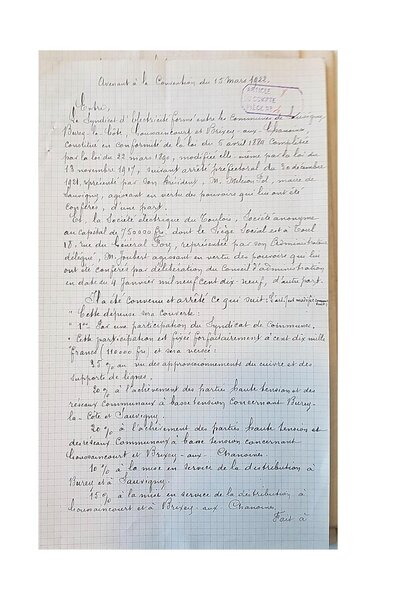 Avenant à la Convention du 15 Mars 1922
ARTICLE
COMPTE
PIÈCE
Entre,
Le Syndicat d'électricité formé entre les communes de Sauvigny,
Burey-la-Côte, Goussaincourt et Brixey-aux-Chanoines,
constitué en conformité de la loi du 5 avril 1884 complétée
par la loi du 22 mars 1890, modifiée elle-même par la loi du
13 novembre 1917, suivant arrêté préfectoral du 30 décembre
1921, représenté par son Président, M. maire de
Sauvigny, agissant en vertu des pouvoirs qui lui ont été
conférés, d'une part.
Et la Société électrique du Toulois, Société anonyme
au capital de 750000 frs dont le Siège Social est à Toul
18, rue du Général Foy, représentée par son Administrateur
délégué, M. Joubert agissant en vertu des pouvoirs qui lui
ont été conférés par délibération du Conseil d'administration
en date du 4 Janvier mil neuf cent dix neuf, d'autre part.
Il a été convenu et arrêté ce qui suit:
" Cette dépense sera couverte:
" 1er Par une participation du Syndicat de Communes,
" Cette participation est fixée forfaitairement à cent dix mille
francs (110000 frs) et sera versée:
35 % au vu des approvisionnements du cuivre et des
supports de lignes.
20 % à l'achèvement des parties haute tension et des
réseaux communaux à basse tension concernant Burey-
la-Côte et Sauvigny.
20 % à l'achèvement des parties haute tension et
des réseaux Communaux à basse tension concernant
Goussaincourt et Brixey-aux-Chanoines.
10 % à la mise en service de la distribution à
Burey et à Sauvigny.
15 % à la mise en service de la distribution à
Goussaincourt et à Brixey-aux-Chanoines.
Fait à